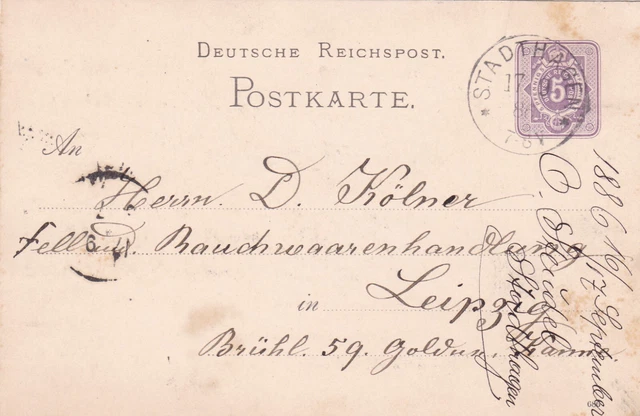 DEUTSCHE REICHSPOST.
POSTKARTE.
STADTHAGEN
17
5
An
Herrn D. Kölner
Fell und Rauchwaarenhandlung
in
Leipzig
Brühl. 59. Goldne Kanne
1886 16/17 September
Stadthagen